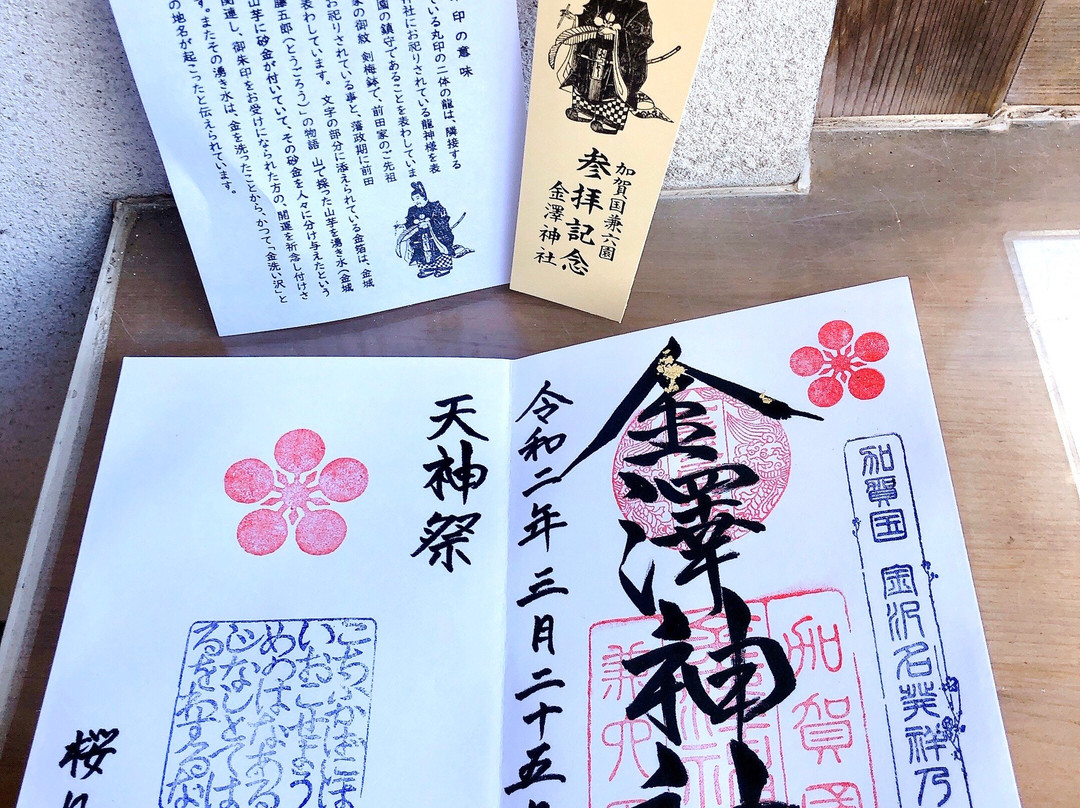 印の意味
ている丸印の二体の龍は、隣接する
神社にお祀りされている龍神様を表
園の鎮守であることを表わしていま
家の御紋 剣梅鉢で、前田家のご先祖
お祀りされている事と、藩政期に前田
表わしています。 文字の部分に添えられている金箔は、金城
藤五郎(とうごろう)」の物語 山で採った山芋を湧き水(金城
山芋に砂金が付いていて、その砂金を人々に分け与えたという
関連し、御朱印をお受けになられた方の、開運を祈念し付けさ
す。またその湧き水は、金を洗ったことから、かつて「金洗い沢」と
の地名が起こったと伝えられています。
加賀国兼六園
参拝記念
金澤神社
加賀国 金沢名発祥乃
加賀国
金澤神社
兼六
金澤神社
令和二年 三月二十五
天神祭
こちふかばにほ
いおこせよう
めのはなある
じなしとては
るをわするな
桜